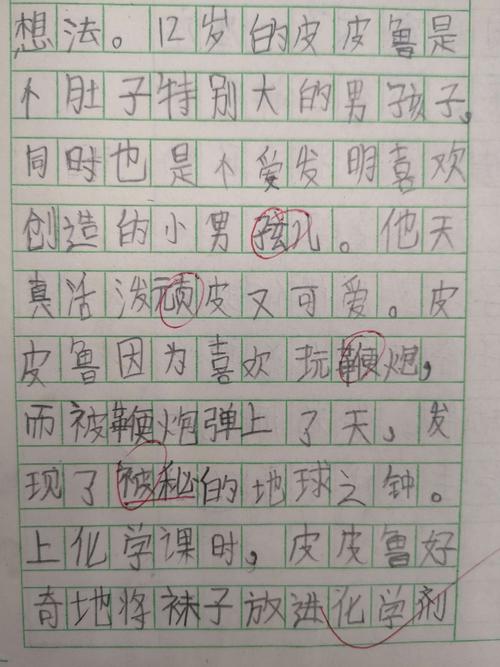 想法。12岁的皮皮鲁是
个肚子特别大的男孩子,
同时也是个爱发明喜欢
创造的小男孩儿。他天
真活泼顽皮又可爱。皮
皮鲁因为喜欢玩鞭炮,
而被鞭炮弹上了天,发
现了被秘的地球之钟。
上化学课时,皮皮鲁好
奇地将袜子放进化学剂